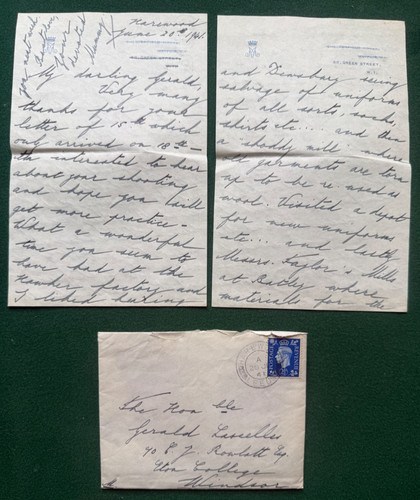 Harewood
June 20th /41.
32, GREEN STREET,
My darling Gerald,
Very many
thanks for your
letter of 15th which
arrived on 18th —
interested to hear
about your shooting
and hope you will
get more practice —
What a wonderful
time you seem to
have had at the
Hawker factory and
I liked hearing
you not
Your
devoted
Mummy
GREEN STREET,
W.1.
and Dewsbury seeing
salvage of uniforms
of all sorts, socks
shirts etc... and then
a shoddy mill where
garments are torn
up to be re-used as
wool. Visited a depot
for new uniforms
etc... and lastly
Messrs. Taylor's Mills
at Batley where
materials for the
POSTAGE REVENUE
20 JU
41
The Hon ble
Gerald Lascelles
℅ C. J. Rowlatt Esq.
Eton College
Windsor